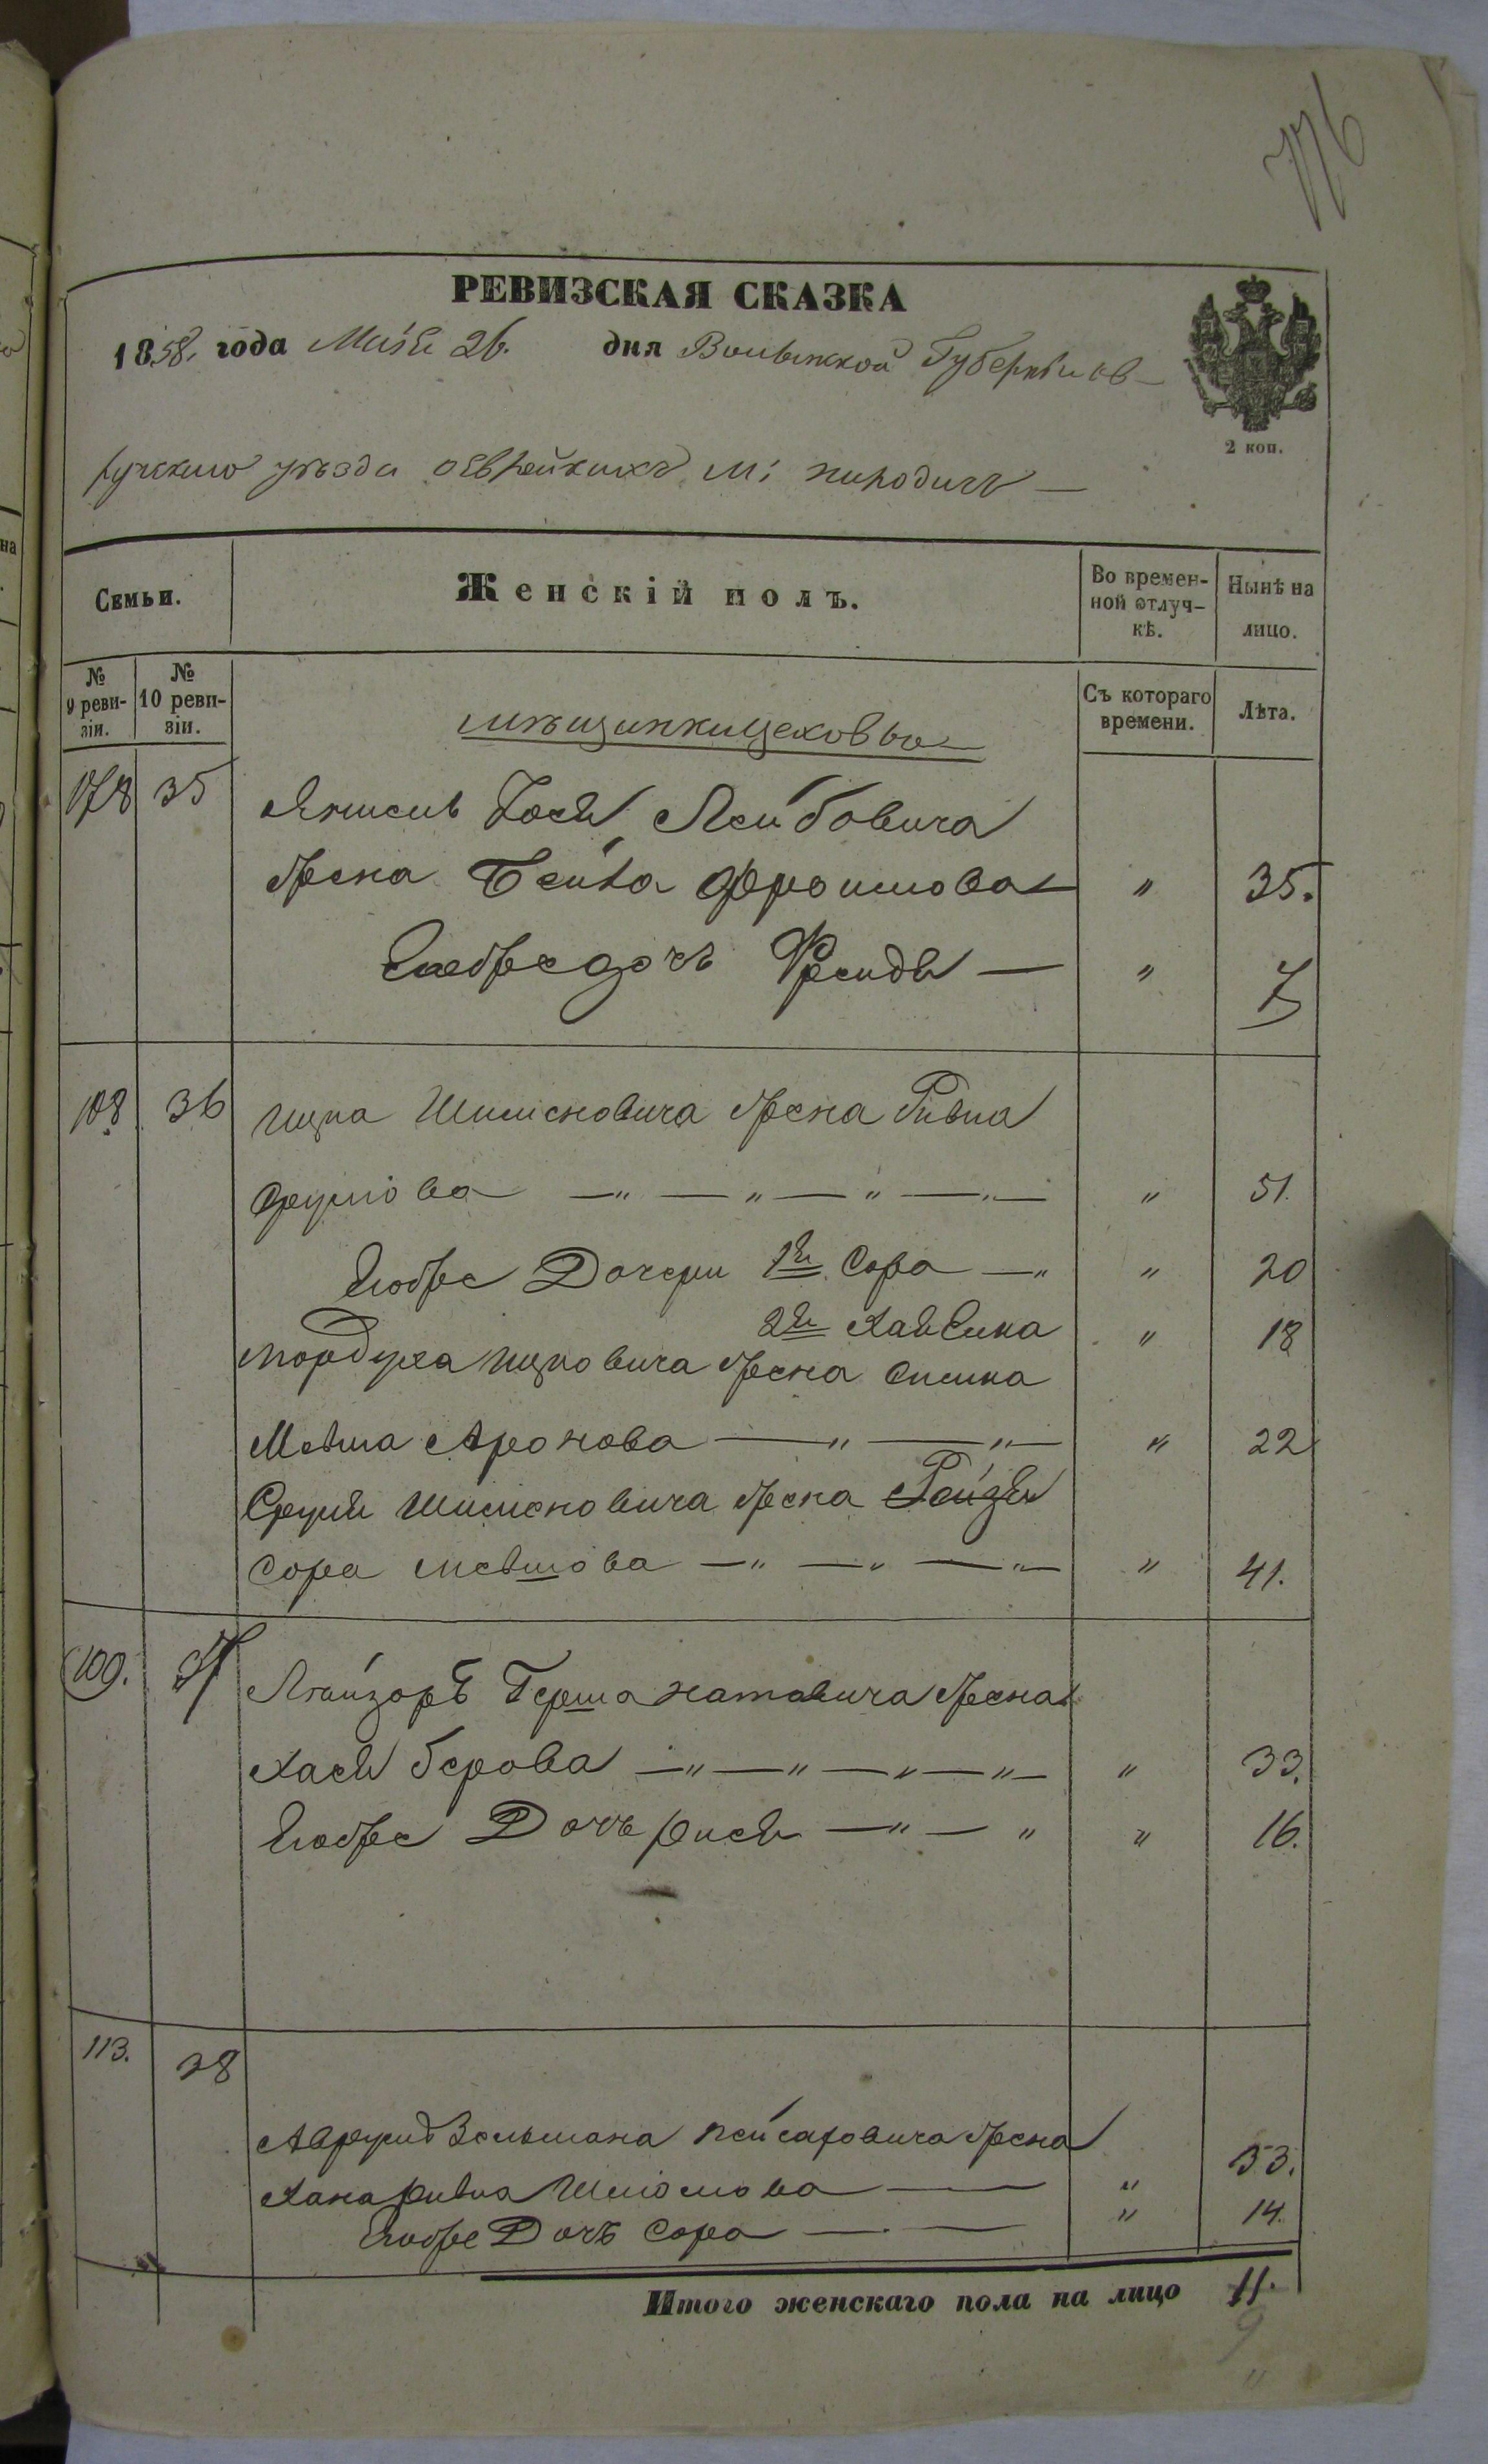 776
РЕВИЗСКАЯ СКАЗКА
1858. года Маія 26. дня Волынской Губерніи Ов-
2 коп.
ручскаго уѣзда Еврейскихъ м: Народичъ —
Семьи.
Женскій полъ.
Во времен-
ной отлуч-
кѣ.
Нынѣ на
лицо.
№
9 реви-
зіи.
№
10 реви-
зіи.
Съ котораго
времени.
Лѣта.
мѣщанки цеховые
35 Іося Лейбовича
жена Бейла Фроимова " 35.
Егоже дочь Фрейда — " 7
108 36 Ицка Шимоновича жена Ривка
Срулова — " — " — " — " — " 51.
Егоже Дочери 1я Сора — " " 20
2я Хая Сима " 18
Мордуха Ицковича жена
Аронова — " — " — " 22
Сруля Шимоновича жена Рейзя
Сора Мевшова — " — " — " — " 41.
109. 37 Лейзоръ Герша жена
Хася Берова — " — " — " — " — " 33.
Егоже Дочь Рися — " — " " 16.
113. 38
Зельмана Пейсаховича жена
Хана Ривка Шліомова — " 53.
Егоже Дочь Сора — . — " 14.
Итого женскаго пола на лицо 11.
9
"